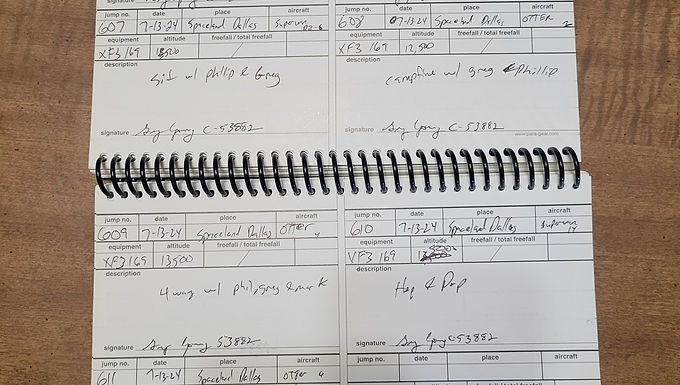 jump no. date place aircraft
607 7-13-24 Spaceland Dallas
equipment altitude freefall / total freefall
XF3 169
description
Sit w/ phillip & Greg
signature C-53882
jump no. date place aircraft
608 07-13-24 Spaceland Dallas OTTER 2
equipment altitude freefall / total freefall
XF3 169 12,500
description
w/ greg & Phillip
signature C-53882
www.para-gear.com
jump no. date place aircraft
609 7-13-24 Spaceland Dallas OTTER 4
equipment altitude freefall / total freefall
XF3 169 13,500
description
4 way w/ phil, greg & mark
signature 53882
jump no. date place aircraft
610 7-13-24 Spaceland Dallas
equipment altitude freefall / total freefall
VF3 169
description
Hop & Pop
signature C-53882
jump no. date place aircraft
611 7-13-24 Spaceland Dallas OTTER 6
jump no. date place aircraft